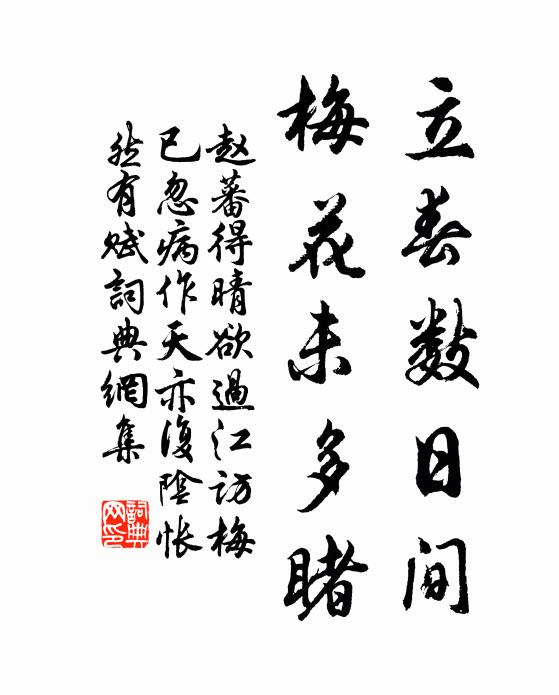 立春数日间
梅花未多睹
赵蕃得晴欲過江访梅
已忽病作天亦復陰怅
然有赋詞典網集
詞典
网印